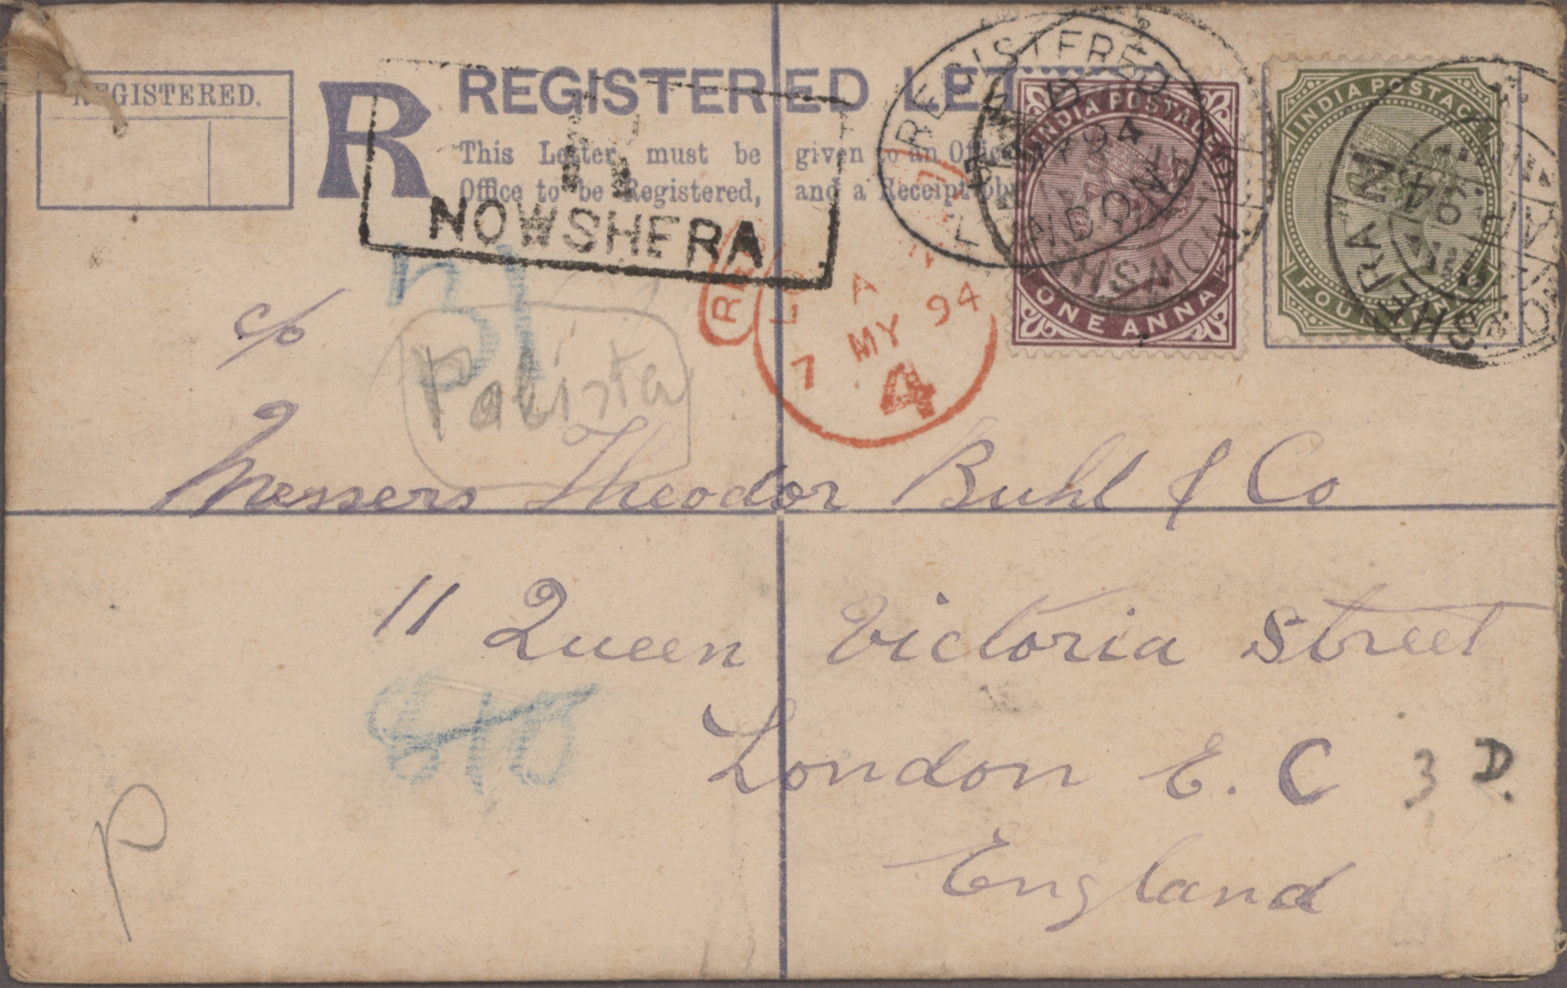 REGISTERED.
R
REGISTERED LETTER
This Letter must be given to an Officer
Office to be Registered, and a Receipt
R
NOWSHERA
REGISTERED
LONDON
MY 94
INDIA POSTAGE
ONE ANNA
INDIA POSTAGE
FOUR
NOWSHERA
7 MY 94
4
31
Pakista
c/o
Messers Theodor Buhl & Co
11 Queen Victoria Street
London E. C
England
3 D.
810
P